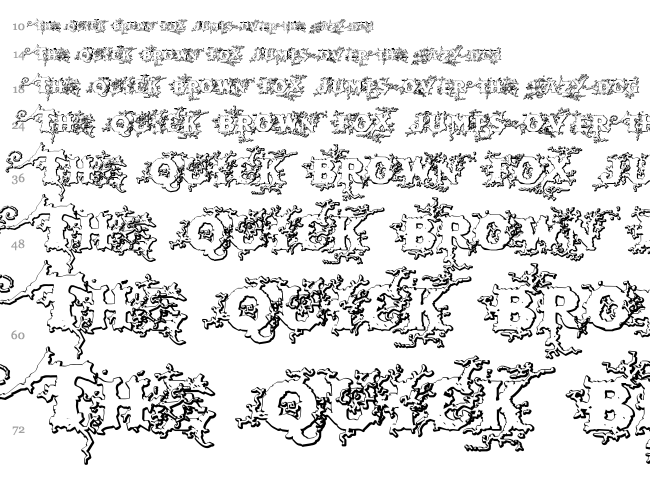 10 THE QUICK BROWN FOX JUMPS OVER THE LAZY DOG
14 THE QUICK BROWN FOX JUMPS OVER THE LAZY DOG
18 THE QUICK BROWN FOX JUMPS OVER THE LAZY DOG
24 THE QUICK BROWN FOX JUMPS OVER TH
36 THE QUICK BROWN FOX JU
48 THE QUICK BROWN
60 THE QUICK BRO
72 THE QUICK B